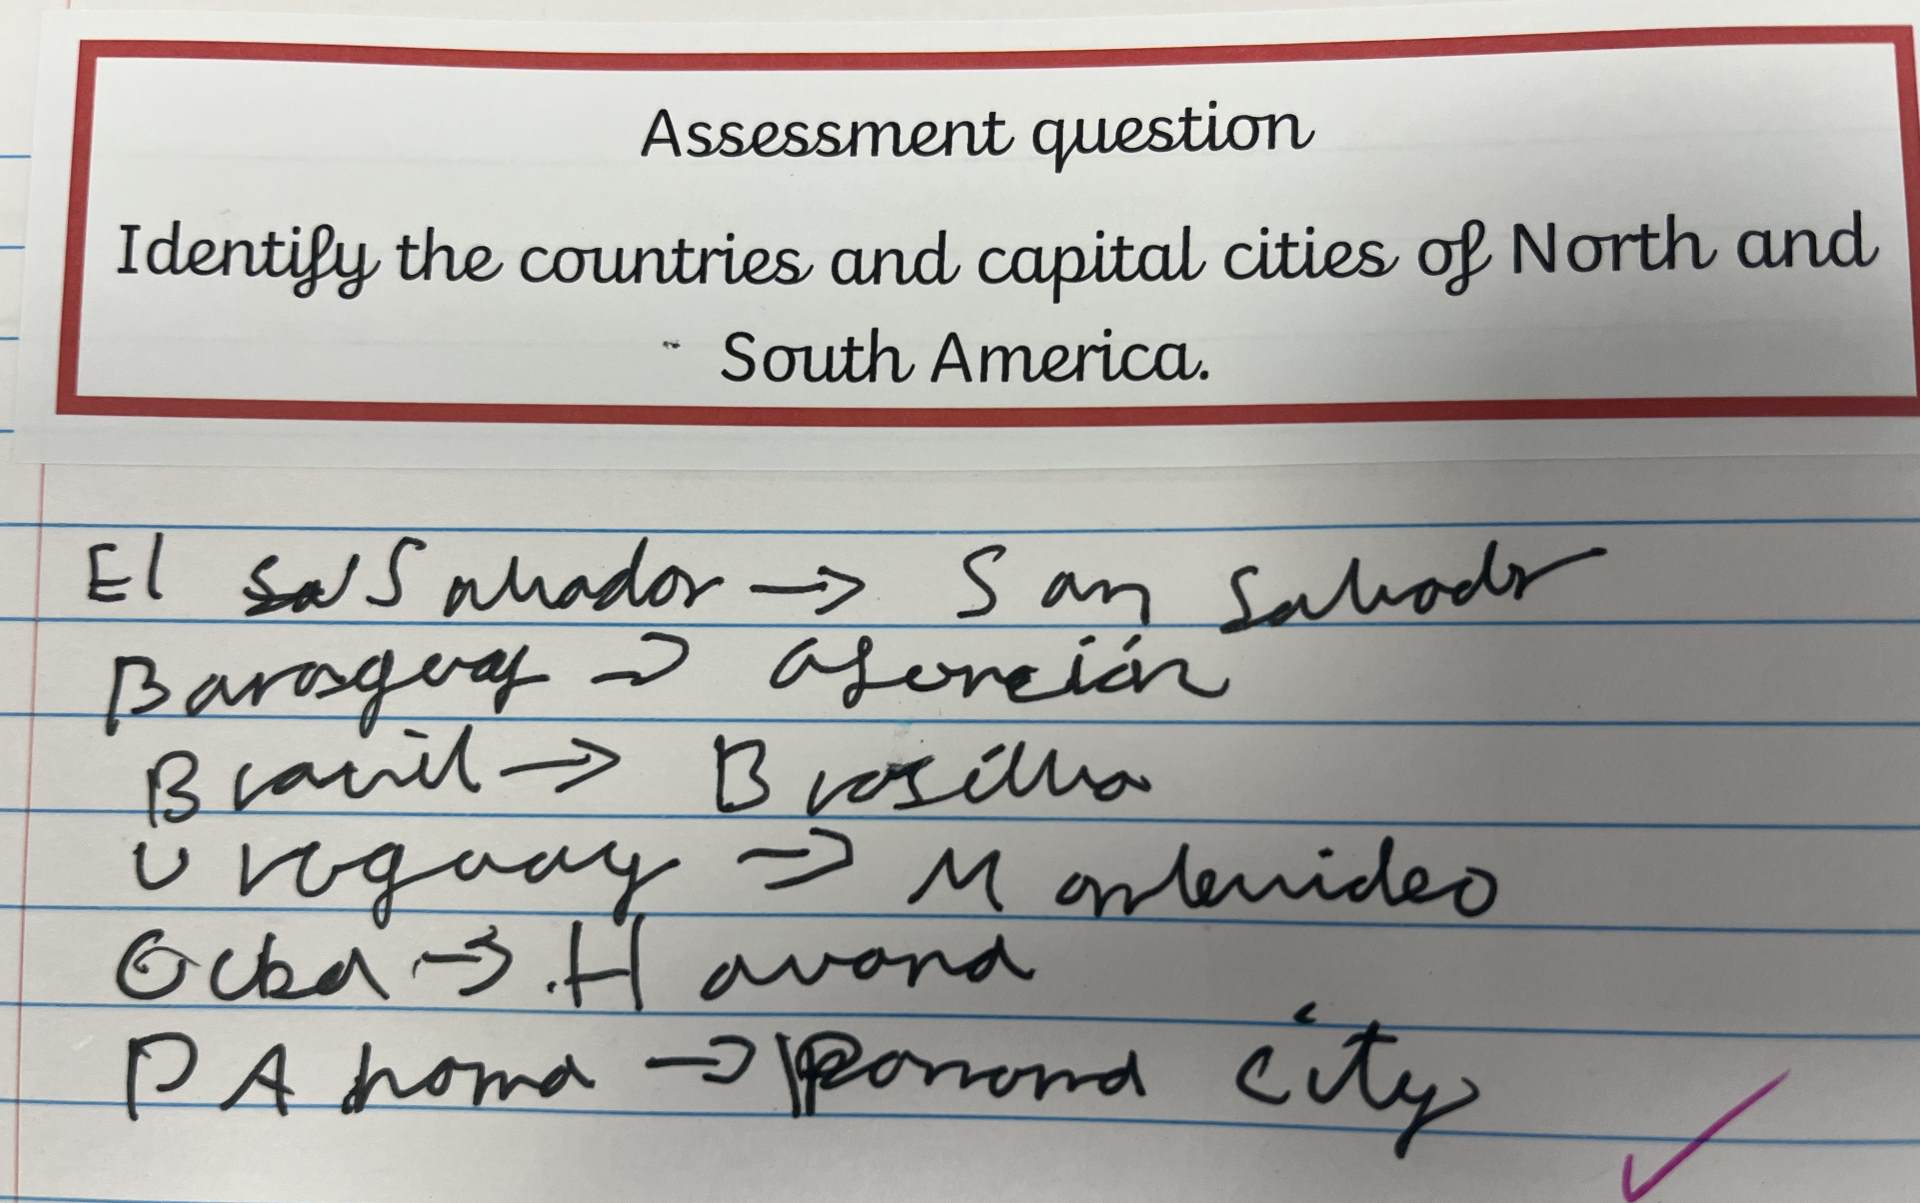 Assessment question
Identify the countries and capital cities of North and
South America.
El Salvador → San Salvador
Baraguay → asunción
Brazil → Brasilla
Uruguay → Montevideo
Cuba → Havana
PAnama → Panama city